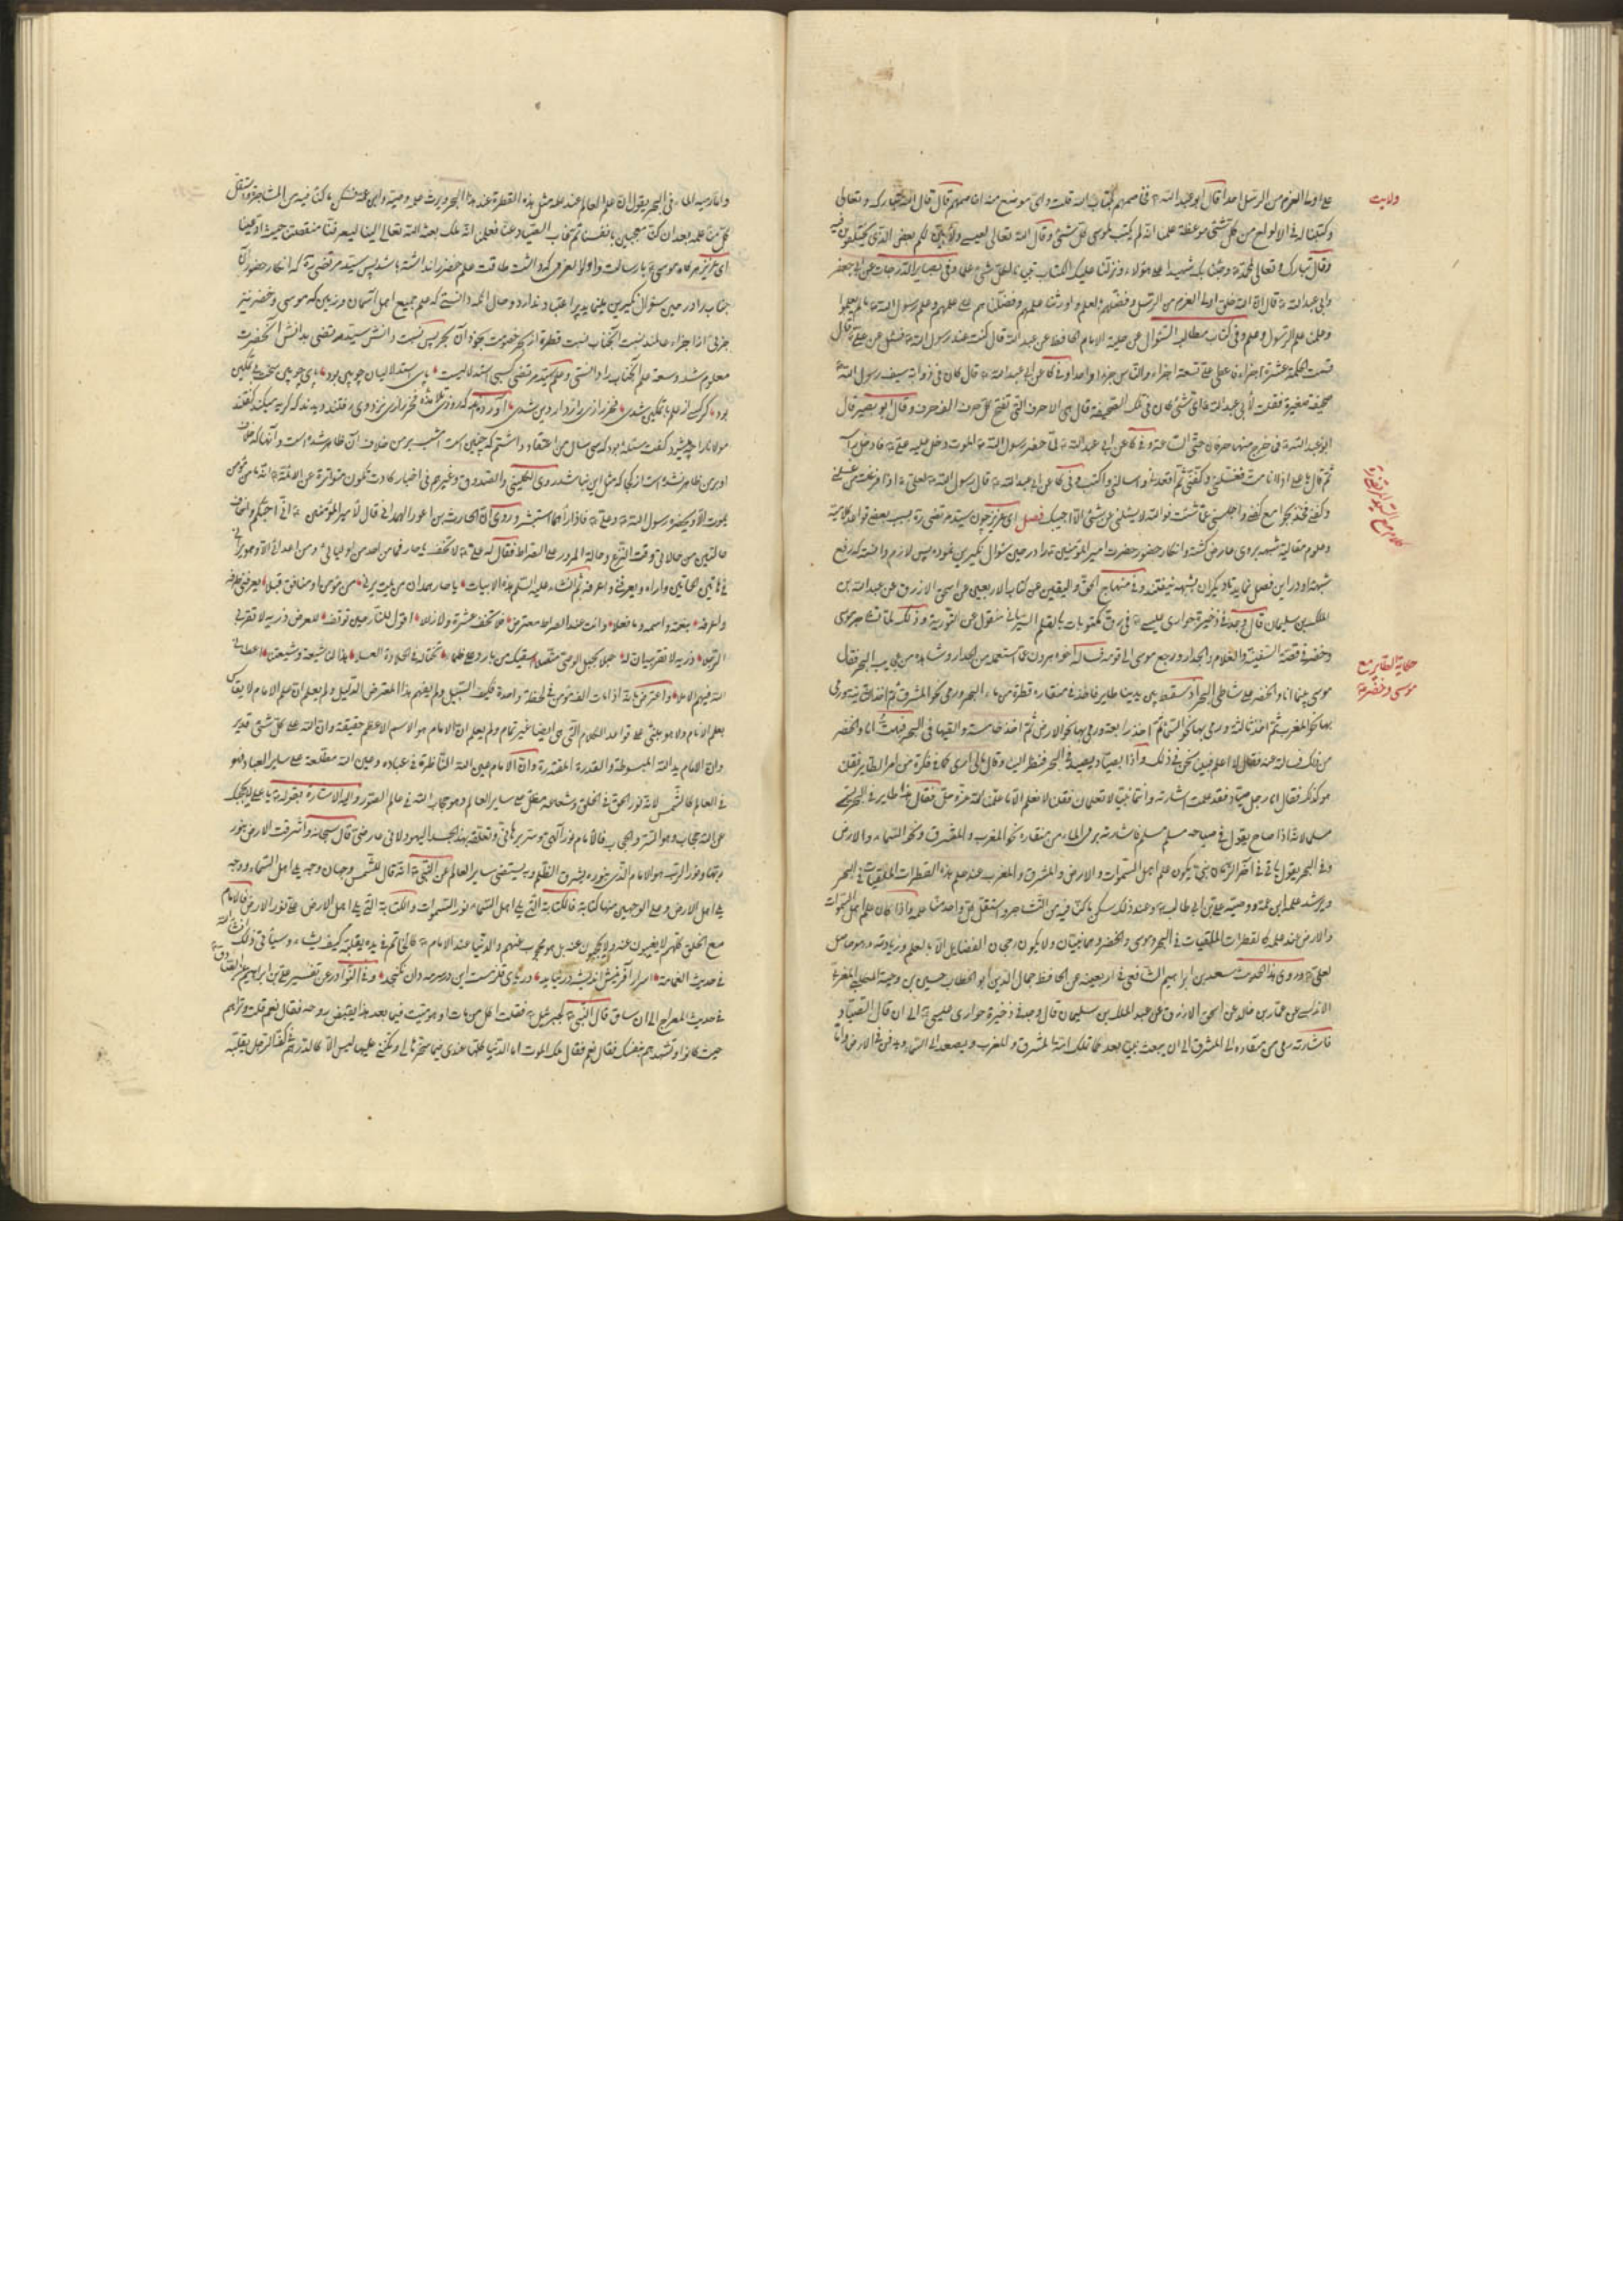 ولايت
على اولى العزم من الرسل احدا قال ابو عبد الله فخاصمهم بكتاب الله قلت واى موضع منه اخاصمهم قال قال الله تبارك وتعالى
وكتبنا له فى الالواح من كل شئ موعظة علمنا انه لم يكتب لموسى كل شئ وقال الله تعالى لعيسى ولابين لكم بعض الذى تختلفون فيه
وقال تبارك وتعالى لمحمد وجئنا بك شهيدا على هؤلاء ونزلنا عليك الكتاب تبيانا لكل شئ وفى بصاير الدرجات عن ابى جعفر
وابى عبد الله قال ان الله خلق اولى العزم من الرسل وفضلهم بالعلم واورثنا علمهم وفضلنا عليهم فى علمهم وعلم رسول الله ما لم يعلموا
وعلمنا علم الرسول وعلمهم وفى كتاب مطالب السؤل عن حلية الامام الحافظ عن عبد الله قال كنت عند رسول الله فسئل عن على فقال
قسمت الحكمة عشرة اجزاء فاعطى على تسعة اجزاء والناس جزءا واحدا وفى كا عن ابى عبد الله قال كان فى ذوابة سيف رسول الله
صحيفة صغيرة فقلت لابى عبد الله اى شئ كان فى تلك الصحيفة قال هى الاحرف التى تفتح كل حرف الف حرف وقال ابو بصير قال
ابو عبد الله فما خرج منها حرفان حتى الساعة وفى كا عن ابى عبد الله لما حضر رسول الله الموت دخل عليه على فادخل راسه
ثم قال يا على اذا انا مت فغسلنى وكفنى ثم اقعدنى وسائلنى واكتب وفى كا عن ابى عبد الله قال رسول الله لعلى اذا فرغت من غسلى
وكفنى فخذ بجوامع كفنى واجلسنى ثم سلنى عما شئت فوالله لا تسئلنى عن شئ الا اجبتك فصل اى عزيز چون سيد مرتضى ره بسبب بعضى قواعد كلاميه
كلام مع السيد المرتضى ره
وعلوم مقاليه شبهه بروى عارض كشته وانكار حضور حضرت امير المؤمنين را در حين سؤال نكيرين نموده پس لازم دانسته كه رفع
شبهه او در اين فصل نمايد تا ديكران بشبهه نيفتند وفى منهاج الحق واليقين عن كتاب الاربعين عن اسحق الازرق عن عبد الله بن
الملك بن سليمان قال وجد فى ذخيرة حوارى عيسى فى رق مكتوبات بالقلم السريانى منقول عن التورية وذلك لما تشاجر موسى
وخضر فى قصة السفينة والغلام والجدار ورجع موسى الى قومه فساله اخوه هرون عما استعمله من الجدار وشاهده من عجايب البحر فقال
حكاية الطاير مع
موسى وخضر
موسى بينما انا والخضر على شاطئ البحر اذ سقط بين يدينا طاير فاخذ فى منقاره قطرة من ماء البحر ورمى نحو المشرق ثم اخذ ثانية ورمى
بها نحو المغرب ثم اخذ ثالثة ورمى بها نحو السماء ثم اخذ رابعة ورمى بها نحو الارض ثم اخذ خامسة والقيها فى البحر فبهت انا والخضر
من ذلك فسالته عنه فقال لا اعلم فبينا نحن فى ذلك واذا بصياد يصيد فى البحر فنظر الينا وقال مالى ارى كما فى فكرة من امر الطاير فقلنا
هو كذلك فقال انا رجل صياد وقد علمت اشارته وانتما نبيان لا تعلمان فقلنا لا نعلم الا ما علمنا الله عز وجل فقال هذا طاير فى البحر يسمى
مسلم لانه اذا صاح يقول فى صياحه مسلم مسلم فاشارته برمى الماء من منقاره نحو المغرب والمشرق ونحو السماء والارض
وفى البحر يقول ياتى فى آخر الزمان نبى يكون علم اهل السموات والارض والمشرق والمغرب عند علمه هذه القطرات الملقيات فى البحر
ويرث علمه ابن عمه ووصيه على بن ابى طالب وعند ذلك سكن ما كنا فيه من التشاجر واستقل كل واحد منا علمه واذا كان علم اهل السموات
والارض عند علمه كالقطرات الملقيات فى البحر وموسى والخضر وهما نبيان ولا يكون رجحان الفضايل الا بالعلم وزيادته وهو حاصل
لعلى وروى هذا الحديث سعد بن ابراهيم الشافعى فى اربعينه عن الحافظ جمال الدين ابو الخطاب حسين بن دحية الكلبى المغربى
الاندلسى عن عمار بن خالد عن اسحق الازرق عن عبد الملك بن سليمان قال وجد فى ذخيرة حوارى عيسى الى ان قال الصياد
فاشارته رمى من منقاره الى المشرق الى ان يبعث نبى بعد كما تملك امته المشرق والمغرب ويصعد الى السماء ويدفن فى الارض واما
واما رميه الماء فى البحر يقول ان علم العالم عند علمه مثل هذه القطرة عند هذا البحر ويرث علمه وصيه وابن عمه فسكن ما كنا فيه من المشاجرة واستقل
كل منا علمه بعد ان كنا معجبين بانفسنا ثم غاب الصياد عنا فعلمنا انه ملك بعثه الله تعالى الينا ليعرفنا منقصتنا حيث ادعينا
اى عزيز هركاه موسى با رسالت و اولوا العزمى كه داشت طاقت علم خضر را نداشته باشد پس سيد مرتضى ره كه انكار حضور آن
جناب را در حين سؤال نكيرين بنمايد پر اعتبار ندارد وحال آنكه دانستى كه علم جميع اهل آسمان وزمين كه موسى وخضر نيز
جزئى از اجزاء عالمند نسبت آنجناب نسبت قطره است بحر پس نسبت دانش سيد مرتضى بدانش آنحضرت
معلوم شد وسعت علم آنجناب را دانستى وعلم سيد مرتضى كسبى استدلاليست پاى استدلاليان چوبين بود پاى چوبين سخت بى تمكين
بود كر كسى از علم با تمكين شدى فخر رازى رازدار دين شدى آورده اند كه روزى تلامذه فخر رازى نزد وى رفتند ديدند كه كريه ميكند كفتند
مولانا را چه ميشود كفت مسئله بود كه سى سال من اعتقاد داشتم كه چنين است امشب بر من خلاف آن ظاهر شده است وآنها كه خلاف
او بر من ظاهر نشده است از كجا كه مثل اين نباشد روى الكلينى والصدوق وغيرهم فى اخبار كادت تكون متواترة عن الائمة انه ما من مؤمن
يموت الا ويحضره رسول الله وعلى فاذا رآهما استبشر وروى ان الحارث بن اعور الهمدانى قال لامير المؤمنين انى احبكم واخاف
حالتين من حالاتى وقت النزع وحالة المرور على الصراط فقال له على لا تخف يا حار فما من احد من اوليائى ومن اعدائى الا وهو يرانى
فى هاتين الحالتين واراه ويعرفنى واعرفه ثم انشاء عليه السلم هذه الابيات يا حار همدان من يمت يرنى من مؤمن او منافق قبلا يعرفنى طرفه
واعرفه بنعته واسمه وما فعلا وانت عند الصراط معترضى فلا تخف عثرة ولا زللا اقول للنار حين توقف للعرض ذريه لا تقربى
الرجلا ذريه لا تقربيه ان له حبلا بحبل الوصى متصلا اسقيك من بارد على ظماء تخاله فى الحلاوة العسلا هذا لنا شيعة وشيعتنا اعطانى
الله فيهم الاملا واعترض بانه اذا مات الف مؤمن فى لحظة واحدة فكيف السبيل ولم يفهم هذا المعترض الدليل ولم يعلم ان علم الامام لا يقاس
بعلم الانام ولا هو مبنى على قواعد الكلام التى هى ايضا غير تمام ولم يعلم ان الامام هو الاسم الاعظم حقيقة وان الله على كل شئ قدير
وان الامام يد الله المبسوطة والقدرة المقتدرة وان الامام عين الله الناظرة فى عباده وعين الله مطلعة على ساير العباد وهو
فى العالم كالشمس لانه نور الحق فى الخلق وشعاعه مطل على ساير العالم وهو حجاب الله فى عالم الصور واليه الاشارة بقوله يا على لا يحجبك
عن الله حجاب وهو الستر والحجاب فالامام نور الهى وسر ربانى وتعلقه بهذا الجسد اليه ولانى عارضى قال سبحانه واشرقت الارض بنور
ربها ونور الرب هو الامام الذى بنوره يشرق الظلم وبه يستضئ ساير العالم عن النبى انه قال للشمس وجهان وجه يلى اهل السماء ووجه
يلى اهل الارض وعلى الوجهين منهما كتابة فالكتابة التى يلى اهل السماء نور السموات والكتابة التى يلى اهل الارض على نور الارض فالامام
مع الخلق كلهم لا يغيبون عنه ولا يحجبون عنه بل هو محجوب عنهم والدنيا عند الامام كالخاتم فى يده يقلبه كيف يشاء وسيأتى ذلك انشاء الله
فى حديث الغمامة اسرار آفرينش در درياى قلزمست اين در سر مه دان نكنجد وفى النوادر عن تفسير على بن ابراهيم عن الصادق
فى حديث المعراج الى ان ساق قال النبى لجبرئيل فقلت اكل من مات او هو ميت فيما بعد هذا يقبض روحه فقال نعم قلت وتراهم
حيث كانوا وتشهدهم بنفسك فقال نعم فقال ملك الموت اما الدنيا كلها عندى فيما سخرها لى ومكننى عليها ليس الا كالدرهم فى كف الرجل يقلبه